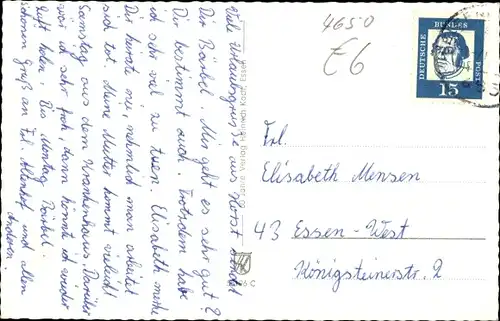 Viele Urlaubsgrüße aus Horst sendet
Dir Bärbel. Mir geht es sehr gut &
Dir bestimmt auch. Trotzdem habe
ich sehr viel zu tuen. Elisabeth merke
Dir heirate nie, nehmlich man arbeitet
sich tot. Meine Mutter kommt vieleicht
Samstag aus dem Krankenhaus. Darüber
wär ich sehr froh, dann könnte ich wieder
Luft holen. Bis Montag Bärbel.
schönen Gruß an Frl. Altenhof und allen
Anderen.
Verlag Heinrich Koch, Essen
4650
E6
DEUTSCHE
BUNDES
POST
15
Frl.
Elisabeth Mensen
43 Essen-West
Königsteinerstr. 2